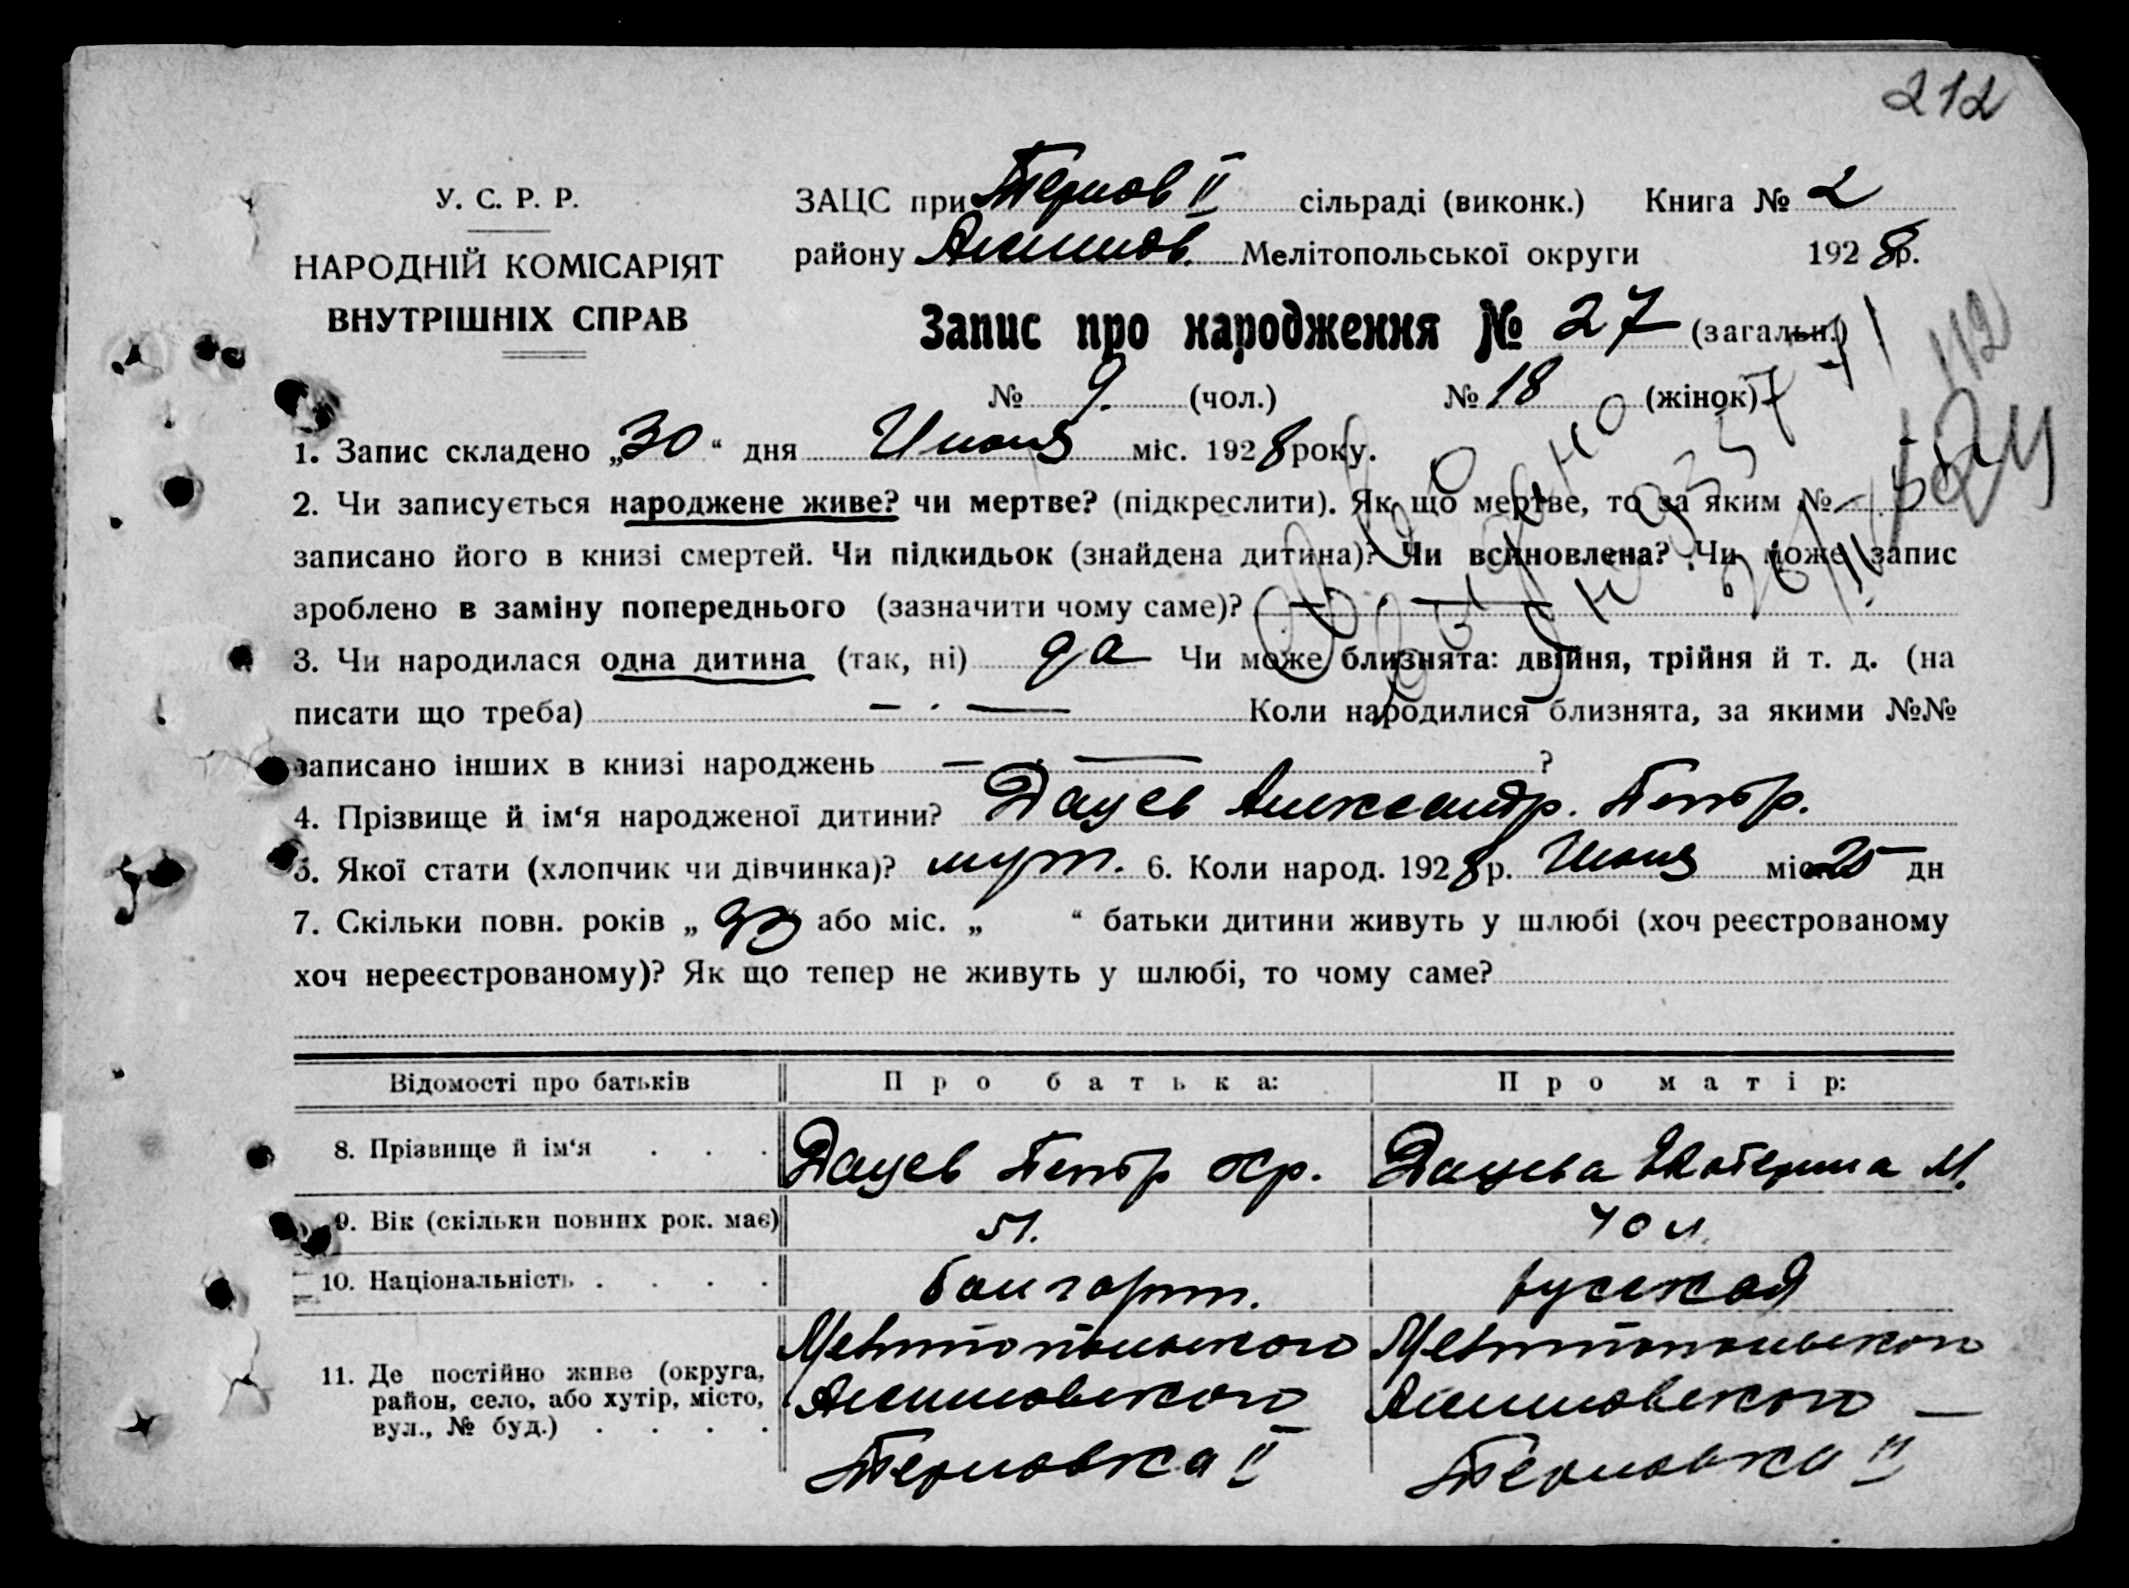 212
У. С. Р. Р.
НАРОДНІЙ КОМІСАРІЯТ
ВНУТРІШНІХ СПРАВ
ЗАЦС при Тернов II сільраді (виконк.) Книга № 2
району Акимов. Мелітопольської округи 1928р.
Запис про народження № 27 (загальн.)
№ 9. (чол.) № 18 (жінок)
112
1. Запис складено „30“ дня Июня міс. 1928 року.
2. Чи записується народжене живе? чи мертве? (підкреслити). Як що мертве, то за яким № —
записано його в книзі смертей. Чи підкидьок (знайдена дитина)? Чи всиновлена? Чи може запис
зроблено в заміну попереднього (зазначити чому саме)? — · —
3. Чи народилася одна дитина (так, ні) да Чи може близнята: двійня, трійня й т. д. (на
писати що треба) — · — Коли народилися близнята, за якими №№
записано інших в книзі народжень — · — ?
4. Прізвище й ім‘я народженої дитини? Дацев Александр. Петр.
5. Якої стати (хлопчик чи дівчинка)? муж. 6. Коли народ. 1928р. Июня міс. 25 дн
7. Скільки повн. років „ “ або міс. „ “ батьки дитини живуть у шлюбі (хоч реєстрованому
хоч нереєстрованому)? Як що тепер не живуть у шлюбі, то чому саме?
Відомості про батьків Про батька: Про матір:
8. Прізвище й ім‘я . . . Дацев Петр Хр. Дацева Екатерина М.
9. Вік (скільки повних рок. має) 51. 40 л.
10. Національність . . . . болгарин. русская
11. Де постійно живе (округа, район, село, або хутір, місто, вул., № буд.) . . . .
Мелитопольского Мелитопольского
Акимовского Акимовского —
Терновка II Терновка II